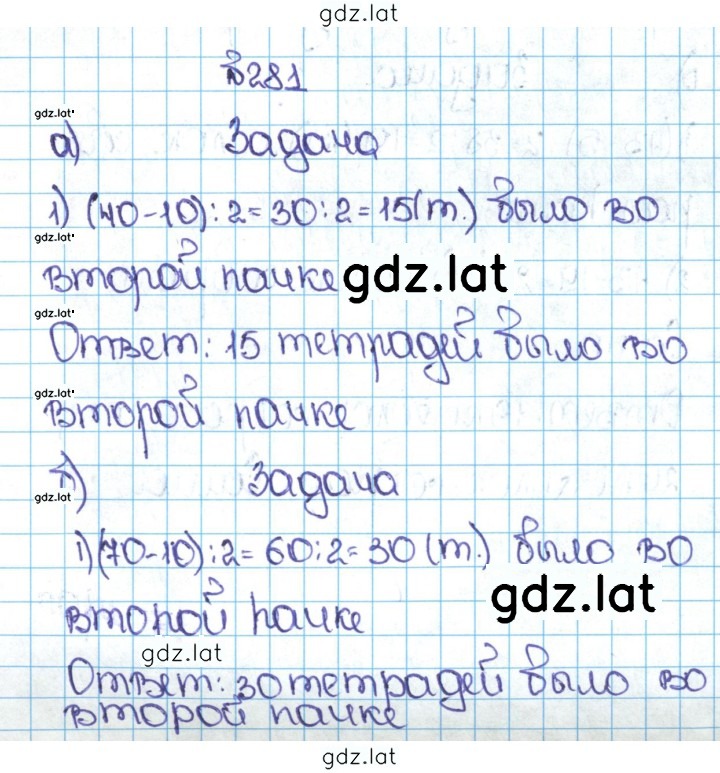 gdz.lat
№281
gdz.lat
а) Задача
1) (40-10):2=30:2=15(т.) было во
gdz.lat
второй пачке gdz.lat
gdz.lat
Ответ: 15 тетрадей было во
gdz.lat
второй пачке
б) Задача
gdz.lat
1)(70-10):2=60:2=30(т.) было во
gdz.lat
второй пачке
gdz.lat
Ответ: 30 тетрадей было во
второй пачке
gdz.lat